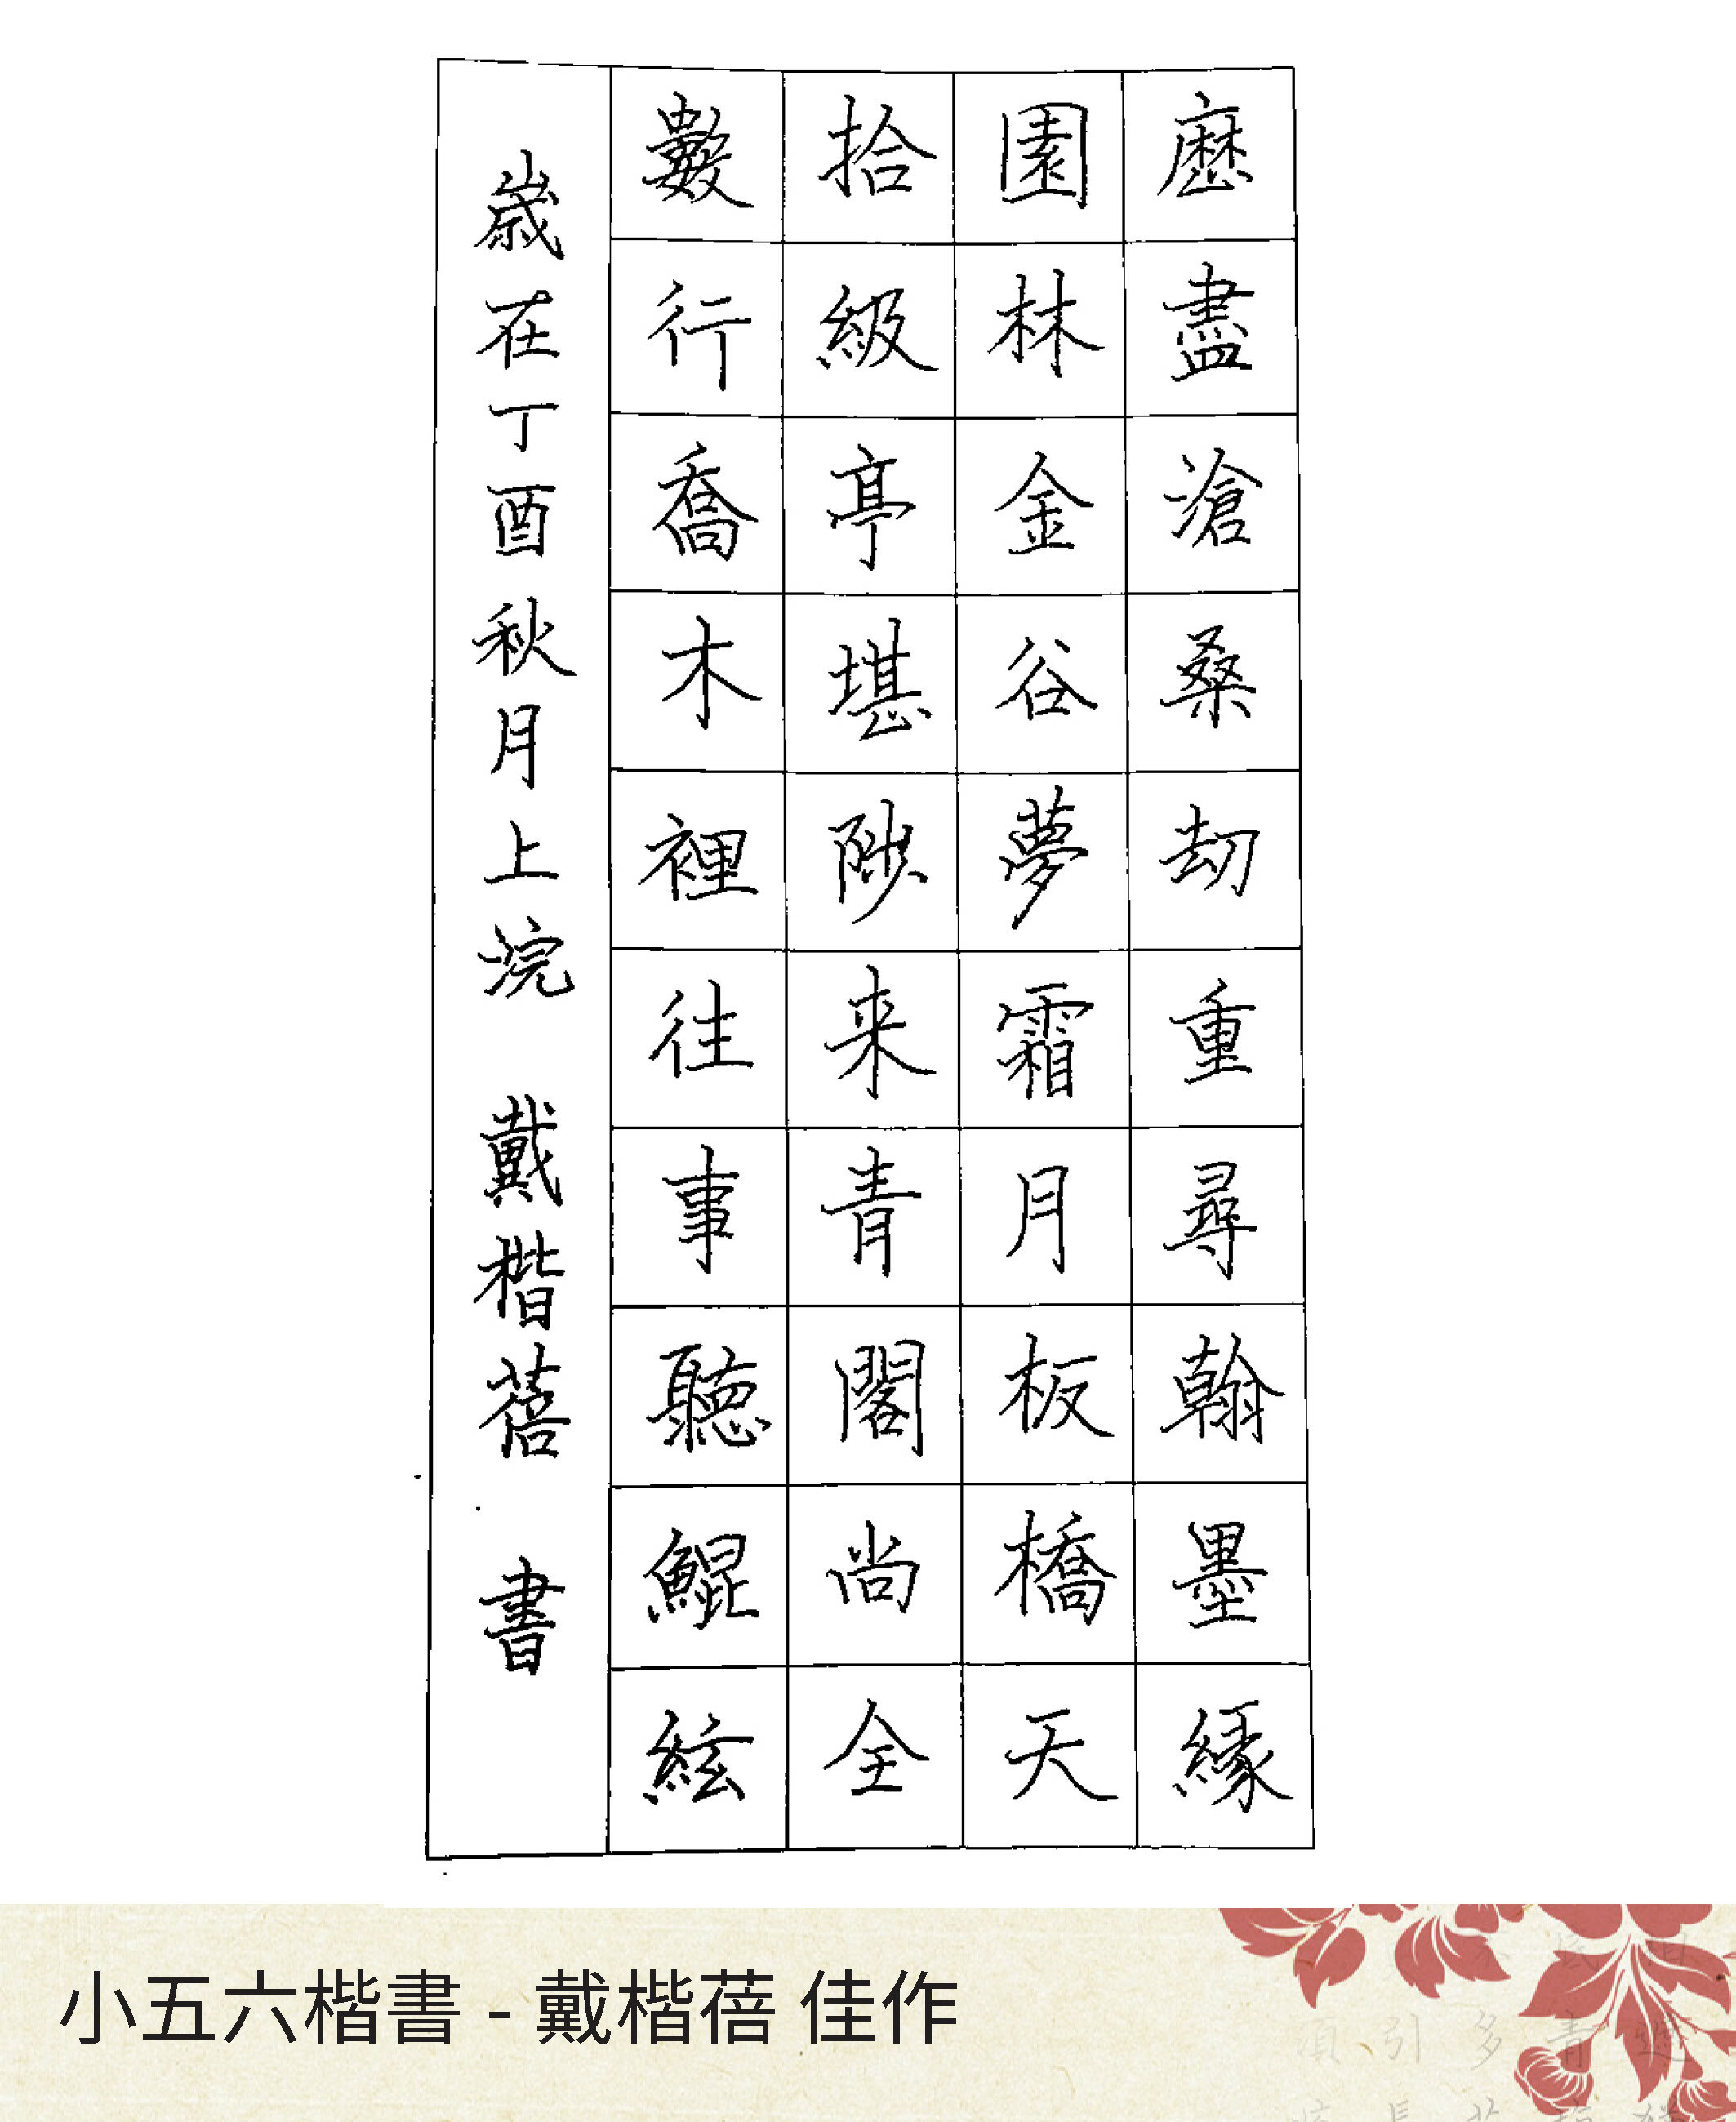 歷盡滄桑劫重尋翰墨緣
園林金谷夢霜月板橋天
拾級亭堪陟来青閣尚全
數行喬木裡往事聽鯤絃
歲在丁酉秋月上浣 戴楷蓓 書
小五六楷書 - 戴楷蓓 佳作